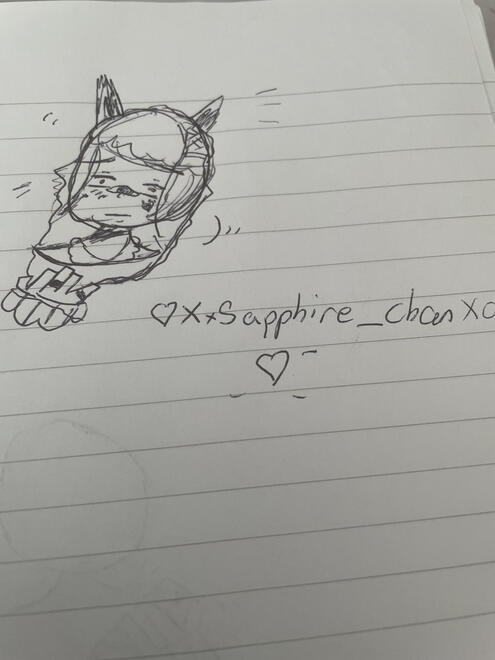 ♡XxSapphire_chanXo
♡